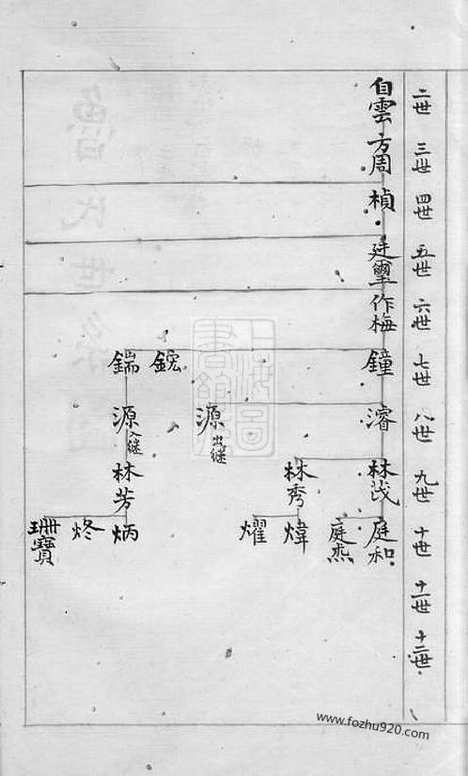 二世 三世 四世 五世 六世 七世 八世 九世 十世 十一世 十二世
白雲 方周 楨 廷璽 作梅 鐘 濬 林茂 庭和
庭杰
林秀 煒
燿
源出継
鋐
鍴 源入継 林芳 炳
炵
珊寶
www.fozhu920.com